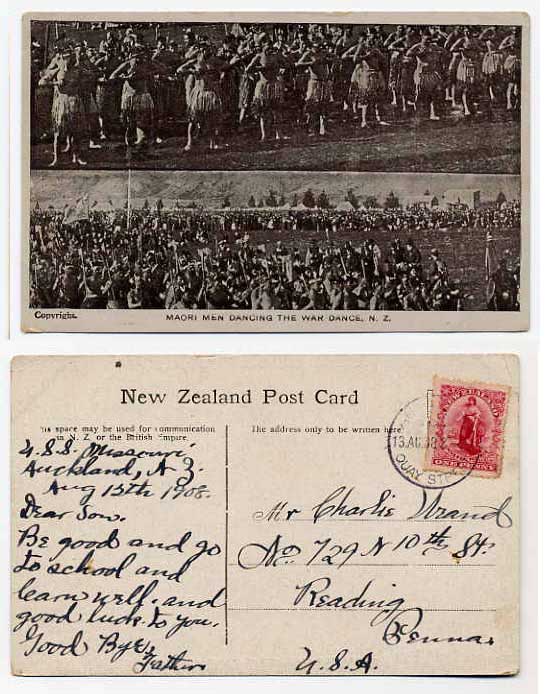 Copyright. MAORI MEN DANCING THE WAR DANCE, N. Z.
New Zealand Post Card
This space may be used for communication
in N. Z. or the British Empire.
The address only to be written here
U.S.S. Missouri
Auckland, N.Z.
Aug 13th 1908.
Dear Son.
Be good and go
to school and
learn well. and
good luck. to you.
Good Bye.
Father
NEW ZEALAND
ONE PENNY
13 AU 08
QUAY ST
Mr Charlie Strand
No. 729 N 10th St.
Reading
Penna.
U.S.A.